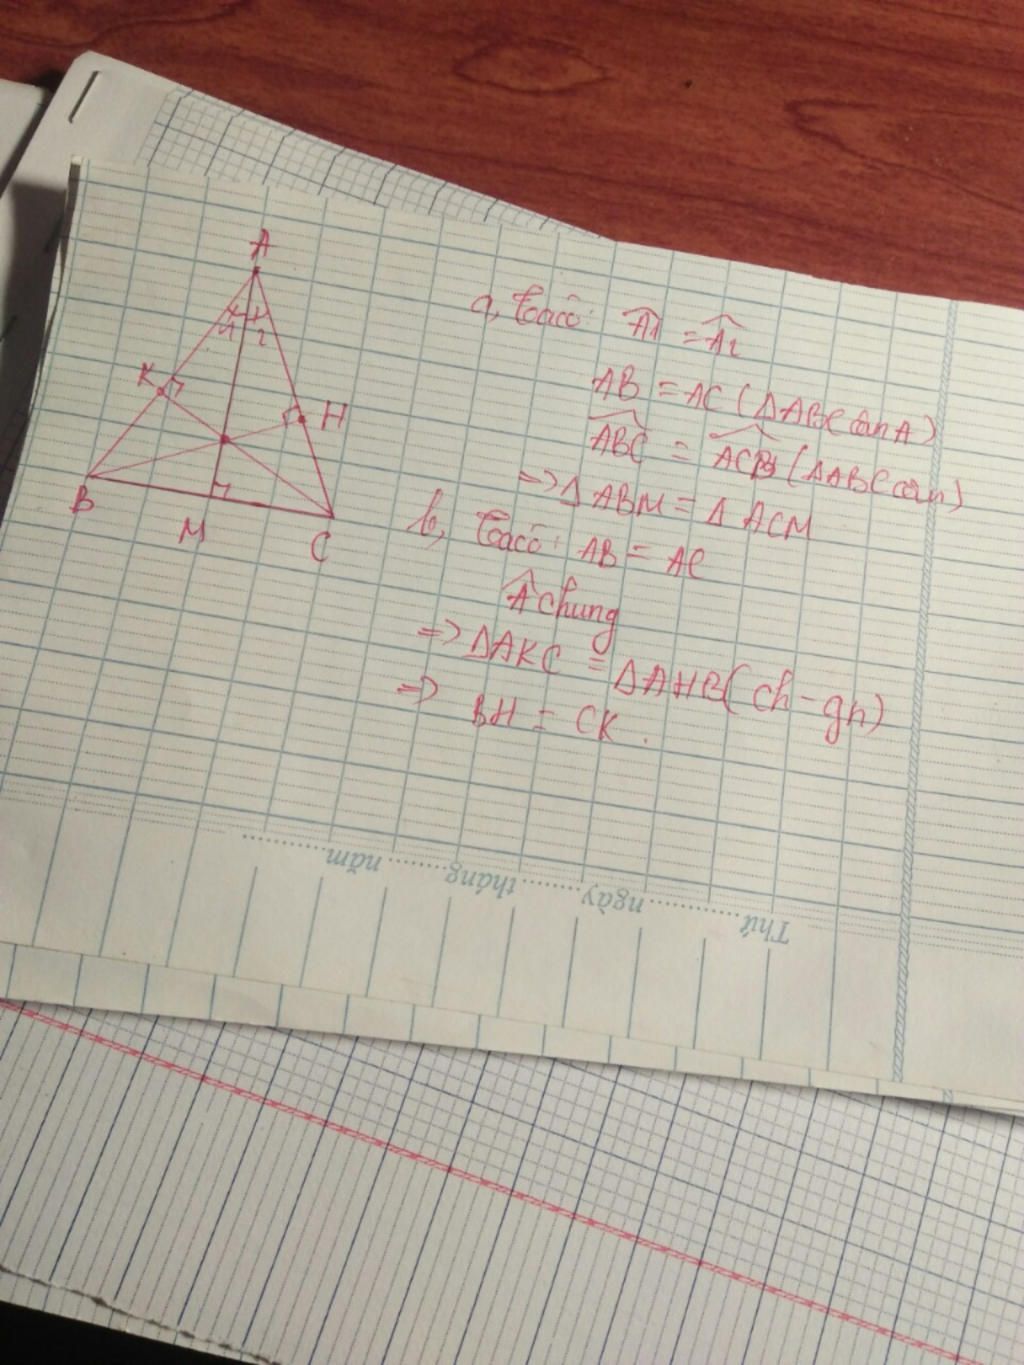 A
1
2
K
H
B
M
C
a, Ta có: Â1 = Â2
AB = AC (ΔABC cân A)
ABC = ACB (ΔABC cân)
=> ΔABM = ΔACM
b, Ta có: AB = AC
Â chung
=> ΔAKC = ΔAHB (ch-gn)
=> BH = CK.
Thứ ............ ngày ............ tháng ............ năm ............